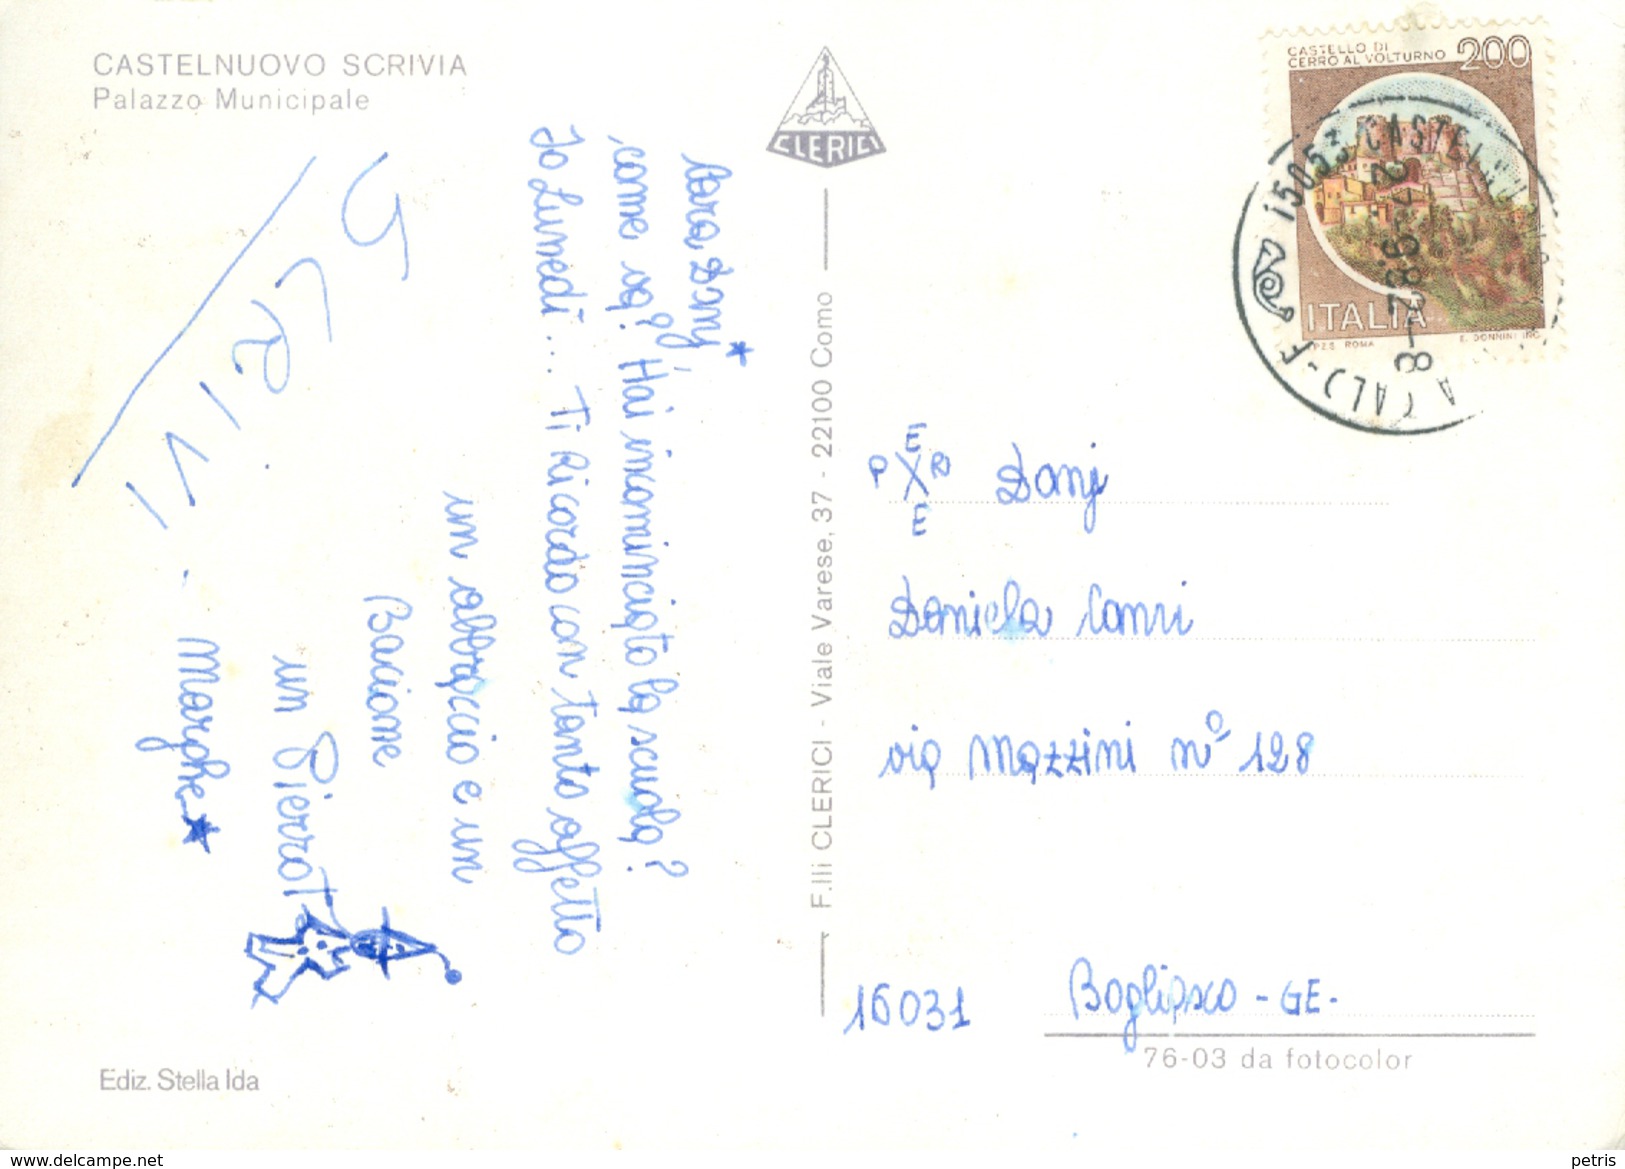 CASTELNUOVO SCRIVIA
Palazzo Municipale
CLERICI
CASTELLO DI
CERRO AL VOLTURNO 200
ITALIA
I.P.Z.S. ROMA E. DONNINI INC.
15053 CASTELNUOVO
A (AL)
Cara Dany,
come va? Hai incominciato la scuola?
Io Lunedì... Ti Ricordo con tanto affetto
un abbraccio e un
Bacione
un Pierrot
Marghe
SCRIVI
F.lli CLERICI - Viale Varese, 37 - 22100 Como
P E R
E
Dany
Daniela Canri
via Mazzini n° 128
16031 Bogliasco - GE-
76-03 da fotocolor
Ediz. Stella Ida
delcampe.net
petris